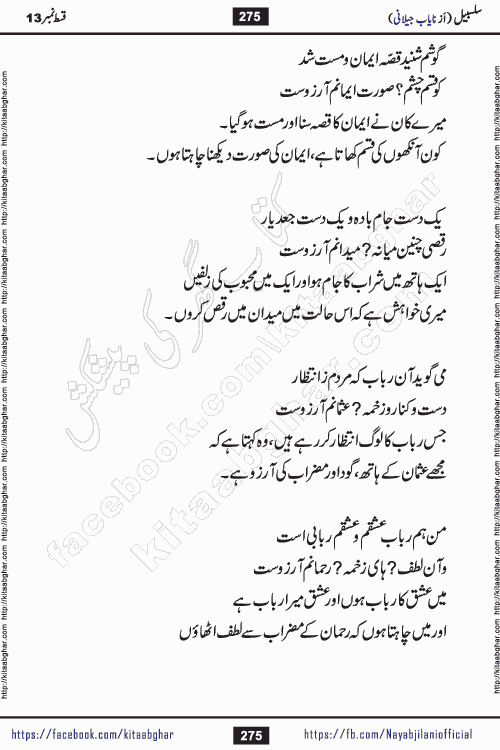 سلسبیل (از نایاب جیلانی)
275
قسط نمبر 13
گوشم شنید قصّہ ایمان و مست شد
کو قسم چشم؟ صورت ایمانم آرزوست
میرے کان نے ایمان کا قصہ سنا اور مست ہو گیا۔
کون آنکھوں کی قسم کھاتا ہے، ایمان کی صورت دیکھنا چاہتا ہوں۔
یک دست جام بادہ و یک دست جعد یار
رقصی چنین میانہ? میدانم آرزوست
ایک ہاتھ میں شراب کا جام ہو اور ایک میں محبوب کی زلفیں
میری خواہش ہے کہ اس حالت میں میدان میں رقص کروں۔
می گوید آن رباب کہ مردم ز انتظار
دست و کنار و زخمہ? عثمانم آرزوست
جس رباب کا لوگ انتظار کر رہے ہیں، وہ کہتا ہے کہ
مجھے عثمان کے ہاتھ، گود اور مضراب کی آرزو ہے۔
من ہم رباب عشقم و عشقم ربابی است
وآن لطف? ہای زخمہ? رحمانم آرزوست
میں عشق کا رباب ہوں اور عشق میرا رباب ہے
اور میں چاہتا ہوں کہ رحمان کے مضراب سے لطف اٹھاؤں
کتاب گھر کی پیشکش
facebook.com/kitaabghar
kitaabghar.com
http://kitaabghar.com http://kitaabghar.com http://kitaabghar.com http://kitaabghar.com http://kitaabghar.com http://kitaabghar.com http://kitaabghar.com
http://kitaabghar.com http://kitaabghar.com http://kitaabghar.com http://kitaabghar.com http://kitaabghar.com http://kitaabghar.com http://kitaabghar.com
https://facebook.com/kitaabghar
275
https://fb.com/Nayabjilaniofficial